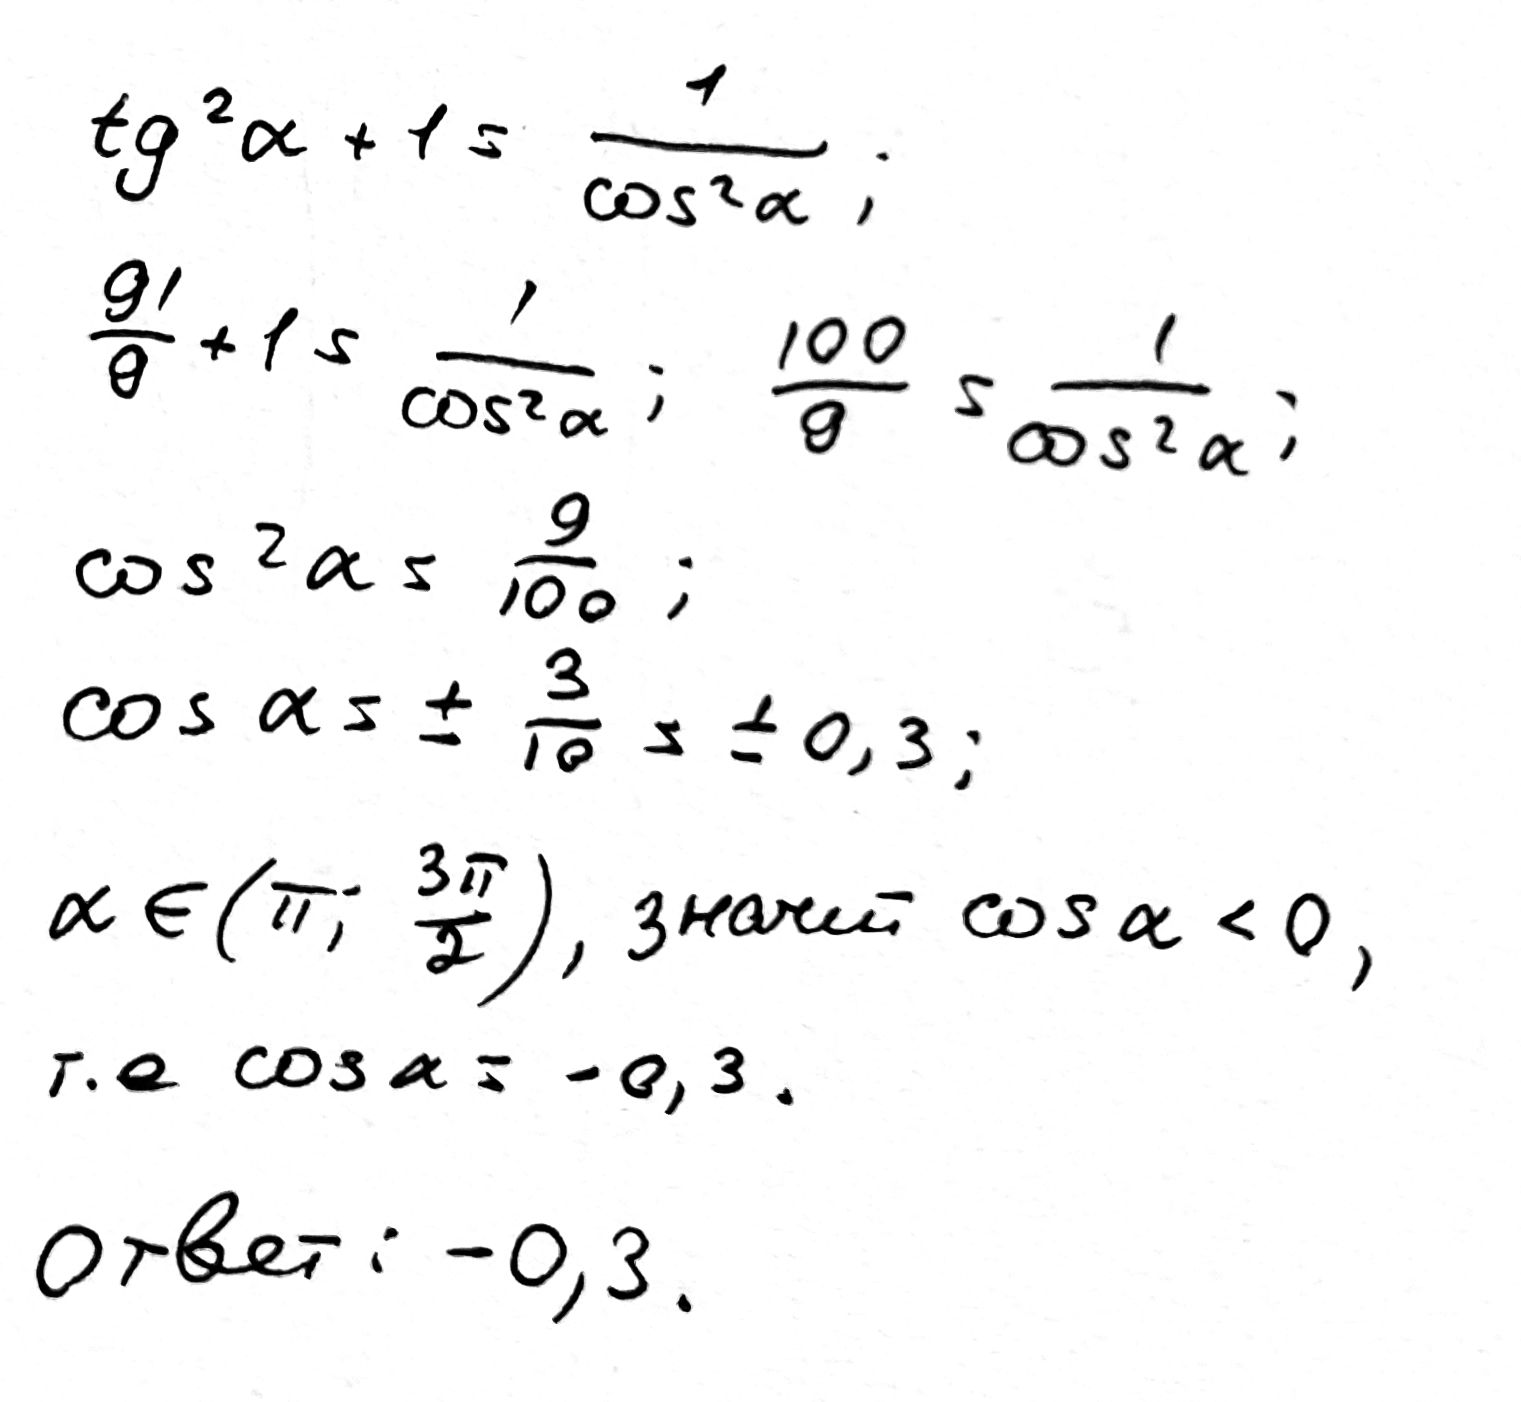 tg²α + 1 = 1/cos²α ;
91/9 + 1 = 1/cos²α ; 100/9 = 1/cos²α ;
cos²α = 9/100 ;
cos α = ± 3/10 = ± 0,3 ;
α ∈ (π; 3π/2), значит cos α < 0,
т.е cos α = -0,3.
Ответ: -0,3.